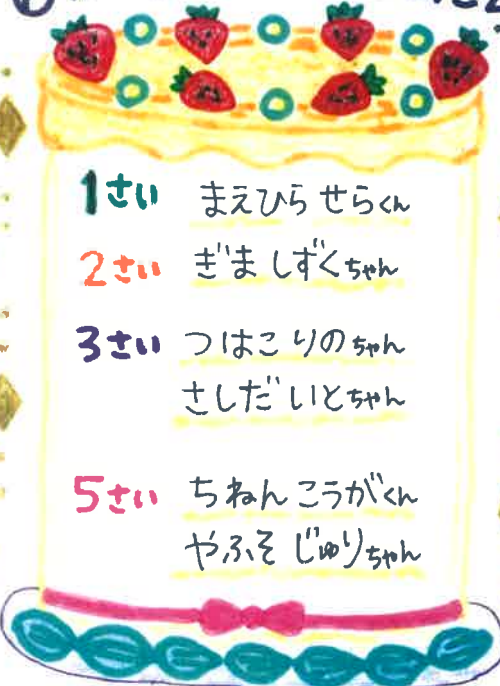 1さい まえひら せらくん
2さい ぎま しずくちゃん
3さい つはこ りのちゃん
さしだ いとちゃん
5さい ちねん こうがくん
やふそ じゅりちゃん